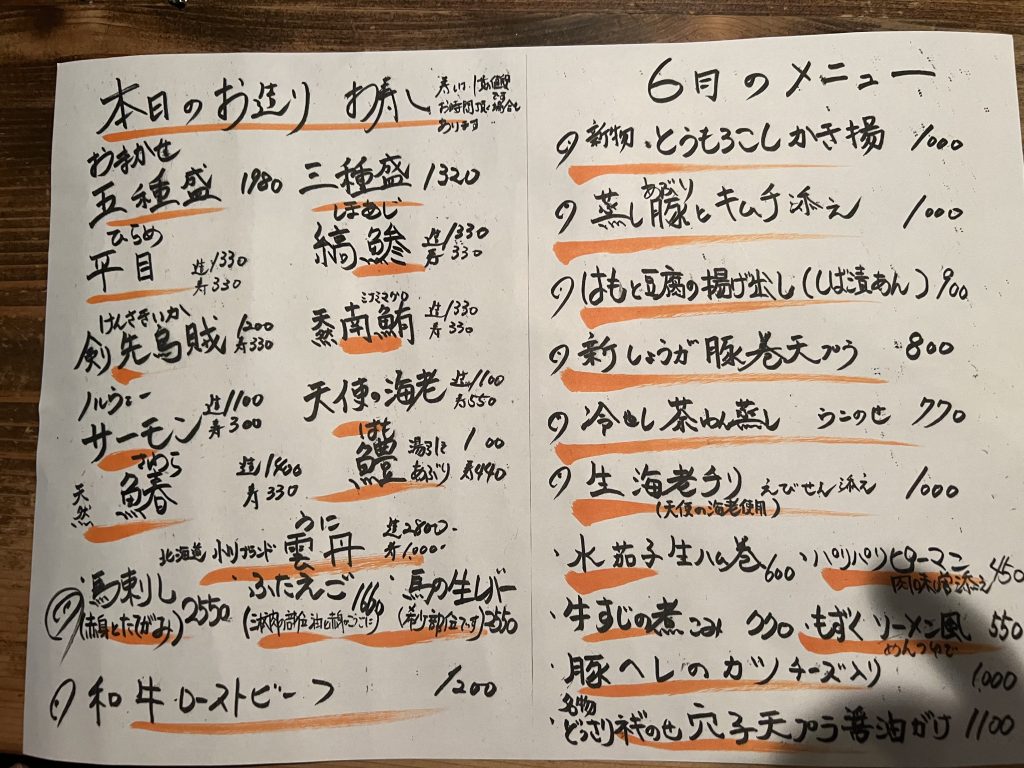 本日のお造り お寿し
お時間頂く場合も
あります
おまかせ
五種盛 1980 三種盛 1320
ひらめ
平目 造1330
寿330
しまあじ
縞鯵 造1330
寿330
けんさきいか
剣先烏賊 1200
寿330
ミナミマグロ
天然 南鮪 造1330
寿330
ノルウェー
サーモン 造1100
寿300
天使の海老 造1100
寿550
さわら
天然 鰆 造1400
寿330
はも
鱧 湯引き
あぶり 寿440
うに
北海道 小川ブランド 雲丹 造2800
寿1,000
馬刺し 2550
(赤身とたてがみ)
ふたえご 1660
馬の生レバー 2550
(希少部位です)
和牛ローストビーフ 1200
6月のメニュー
新物・とうもろこしかき揚 1000
あぶり
蒸し豚とキムチ添え 1000
はもと豆腐の揚げ出し(しば漬あん) 900
新しょうが豚巻天プラ 800
冷し茶わん蒸し うにのせ 770
生海老チリ えびせん添え 1000
(天使の海老使用)
水茄子生ハム巻 600 ・パリパリピーマン 450
肉味噌添え
牛すじの煮こみ 770 ・もずくソーメン風 550
めんつゆで
豚ヘレのカツ チーズ入り 1,000
名物
・どっさりネギのせ穴子天プラ醤油がけ 1100